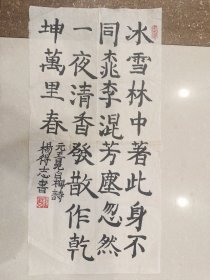 冰雪林中著此身不
同桃李混芳塵忽然
一夜清香發散作乾
坤萬里春
元王冕白梅詩
楊得志書